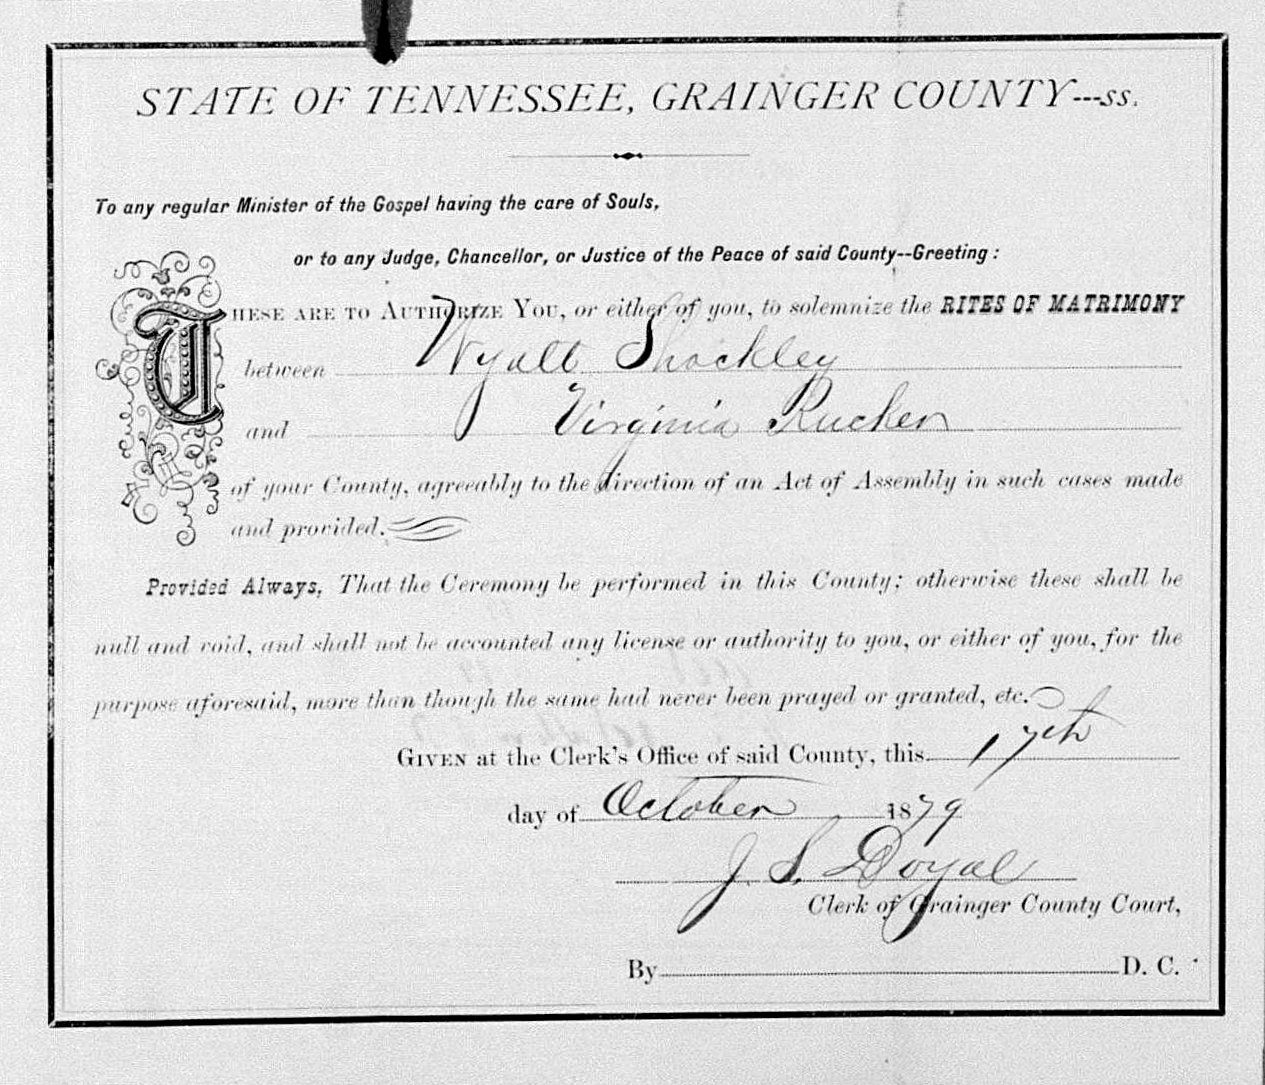 STATE OF TENNESSEE, GRAINGER COUNTY---ss.
To any regular Minister of the Gospel having the care of Souls,
or to any Judge, Chancellor, or Justice of the Peace of said County--Greeting:
THESE ARE TO AUTHORIZE YOU, or either of you, to solemnize the RITES OF MATRIMONY
between Wyatt Shockley
and Virginia Rucker
of your County, agreeably to the direction of an Act of Assembly in such cases made
and provided.
Provided Always, That the Ceremony be performed in this County; otherwise these shall be
null and void, and shall not be accounted any license or authority to you, or either of you, for the
purpose aforesaid, more than though the same had never been prayed or granted, etc.
GIVEN at the Clerk's Office of said County, this 17th
day of October 1879
J. S. Doyal
Clerk of Grainger County Court,
By D. C.